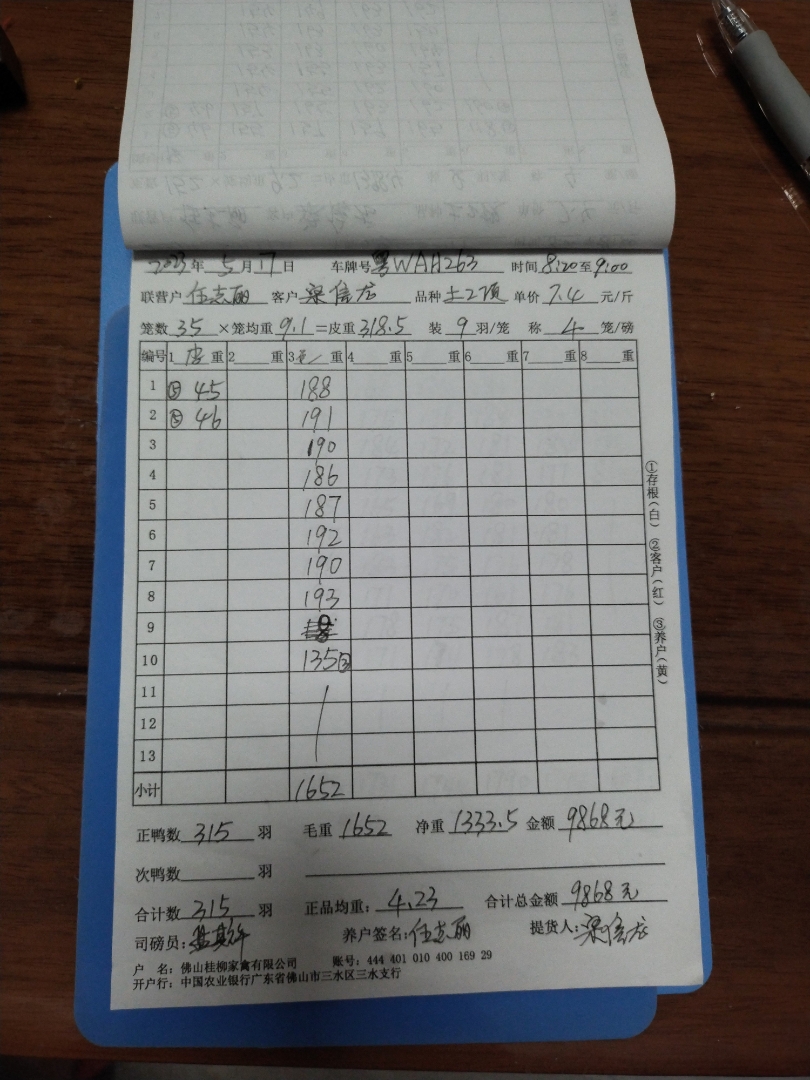 2023年 5月17日 车牌号粤WAH263 时间8:20至9:00
联营户 任志丽 客户 梁信龙 品种 土2项 单价 7.4 元/斤
笼数 35 ×笼均重 9.1 =皮重 318.5 装 9 羽/笼 称 4 笼/磅
编号 1 皮 重 2 重 3 毛 重 4 重 5 重 6 重 7 重 8 重
1 ⑤ 45 188
2 ⑤ 46 191
3 190
4 186
5 187
6 192
7 190
8 193
9
10 135③
11
12
13
小计 1652
正鸭数 315 羽 毛重 1652 净重 1333.5 金额 9868元
次鸭数 羽
合计数 315 羽 正品均重: 4.23 合计总金额 9868元
司磅员: 养户签名: 任志丽 提货人: 梁信龙
户 名: 佛山桂柳家禽有限公司 账号: 444 401 010 400 169 29
开户行: 中国农业银行广东省佛山市三水区三水支行
①存根(白) ②客户(红) ③养户(黄)